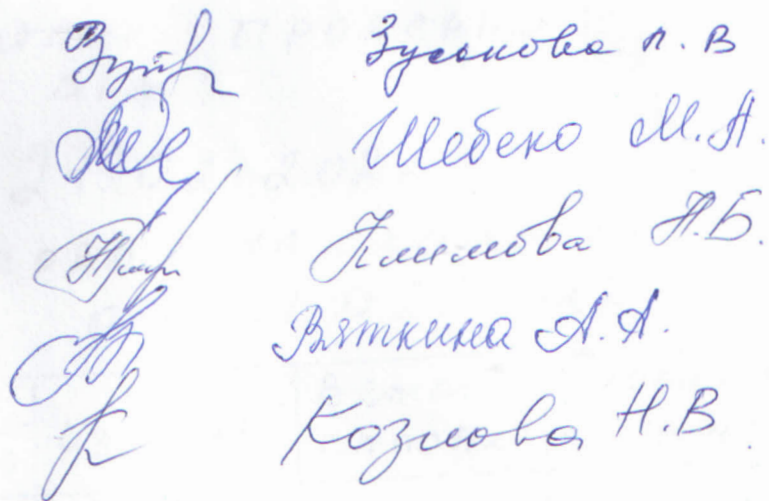 Зуськова Л. В
Шебеко М.А.
Климова Н.Б.
Вяткина А.А.
Козлова Н.В.